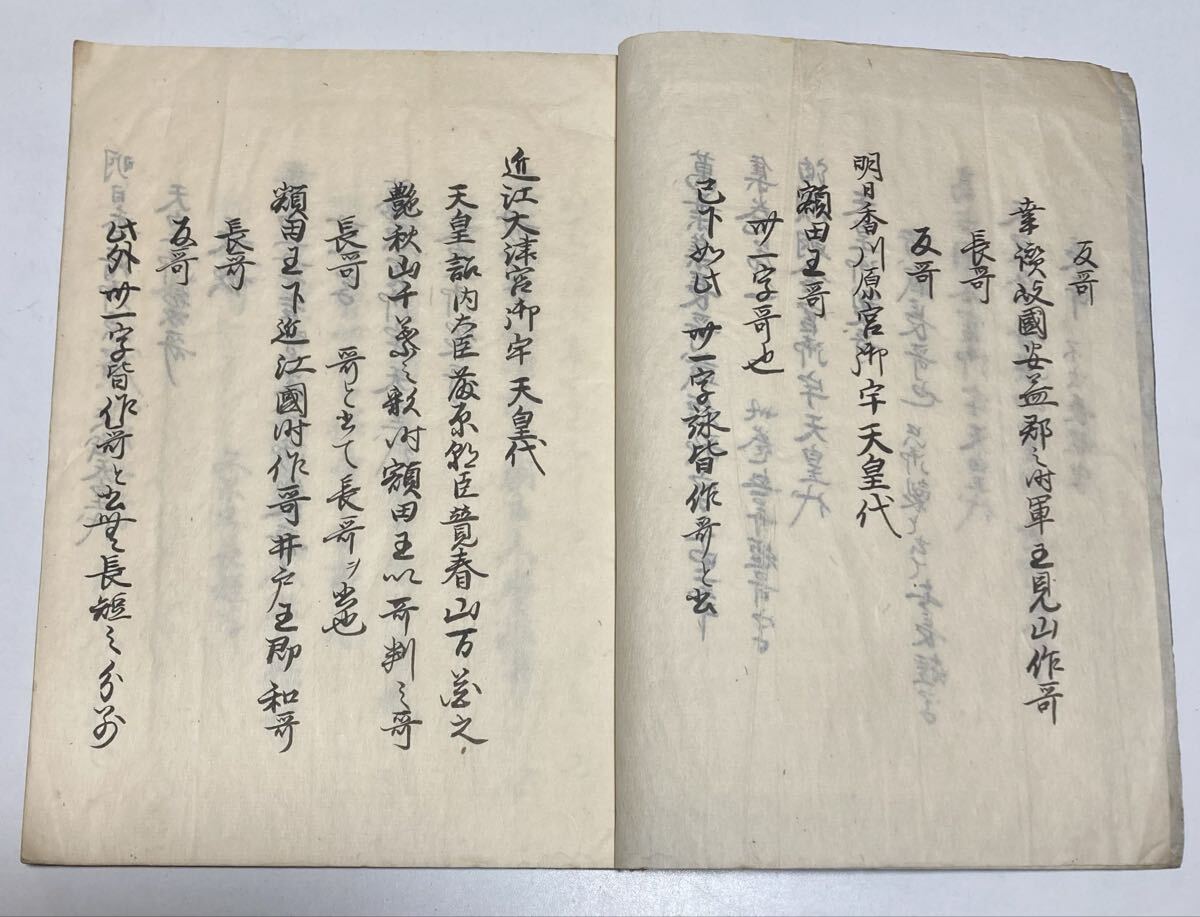 反哥
幸讃岐國安益郡之時軍王見山作哥
長哥
反哥
明日香川原宮御宇天皇代
額田王哥
卅一字哥也
已下如此卅一字詠皆作哥と出
近江大津宮御宇天皇代
天皇詔内大臣藤原朝臣競春山万花之
艶秋山千葉之彩時額田王以哥判之哥
長哥 哥と出て長哥ヲ出也
額田王下近江國時作哥井戸王即和哥
長哥
反哥
此外卅一字皆作哥と出無長短之分別